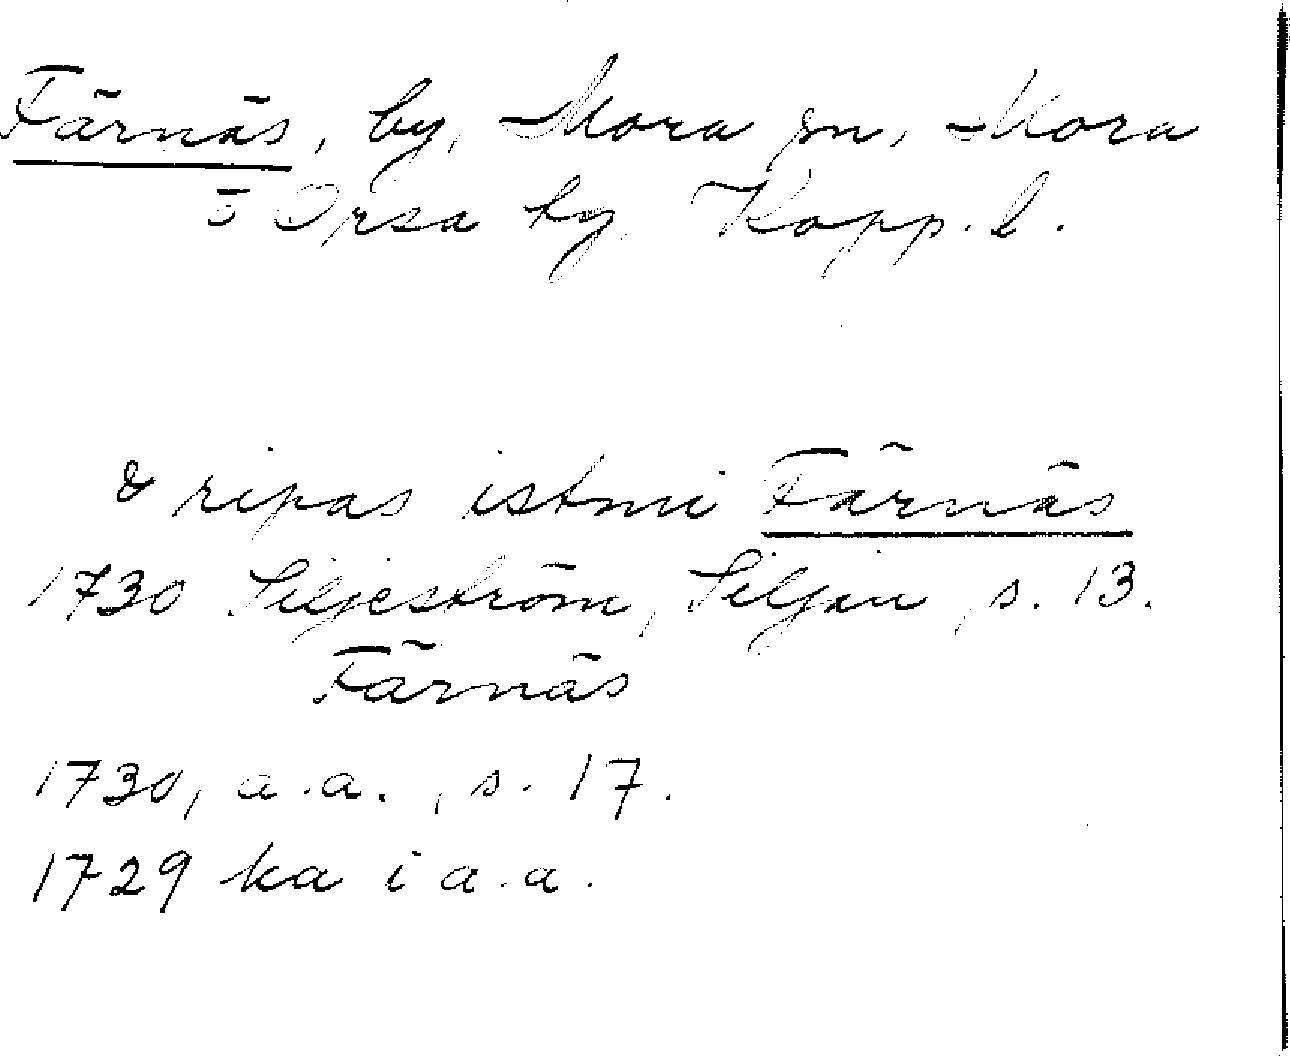 Färnäs, by, Mora sn, Mora
o Orsa hg, Kopp. l.
& ripas istmi Färnäs
1730 Siljeström, Siljan, s. 13.
Färnäs
1730, a.a., s. 17.
1729 ka i a.a.